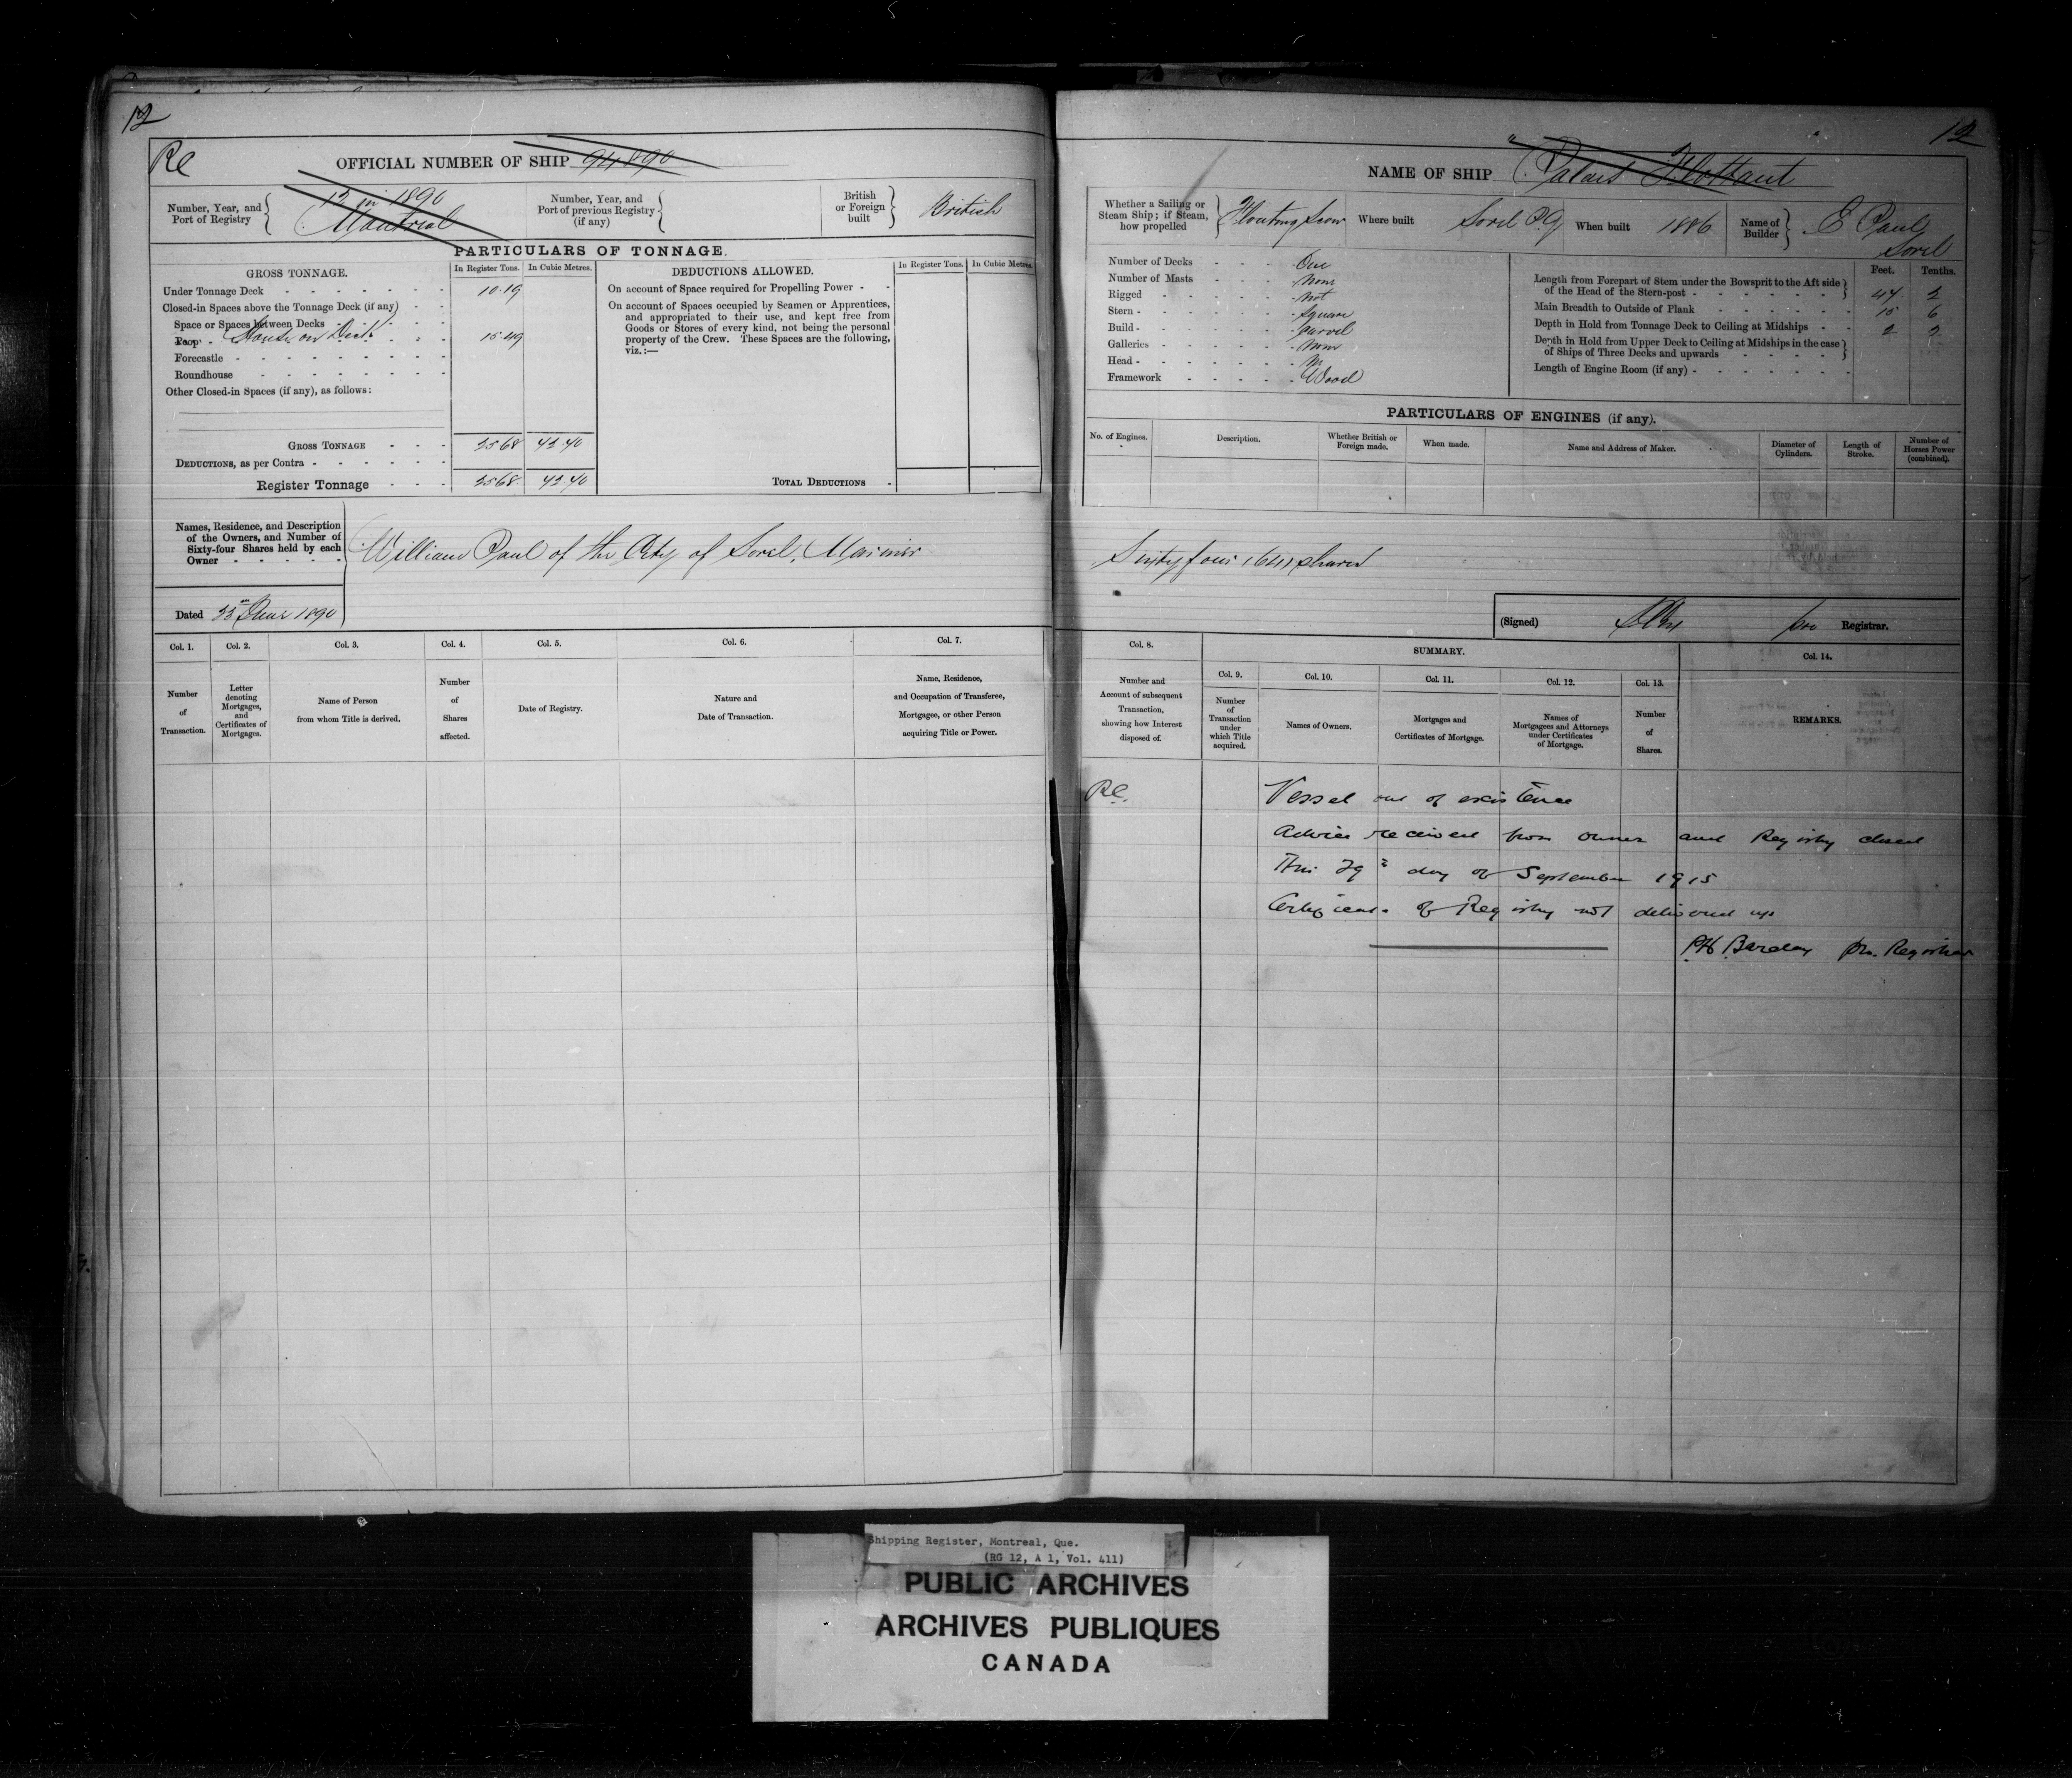 12
Rc
OFFICIAL NUMBER OF SHIP 94890
Number, Year, and Port of Registry { 12 in 1890 Montreal
Number, Year, and Port of previous Registry (if any) {
British or Foreign built } British
PARTICULARS OF TONNAGE.
GROSS TONNAGE.
In Register Tons. In Cubic Metres.
Under Tonnage Deck - - - - - - - 10.19
Closed-in Spaces above the Tonnage Deck (if any) - -
Space or Spaces between Decks - - - -
Poop - House on Deck - - - 15.49
Forecastle - - - - - - - -
Roundhouse - - - - - - -
Other Closed-in Spaces (if any), as follows:
GROSS TONNAGE - - - 2568 42.40
DEDUCTIONS, as per Contra - - - - - -
Register Tonnage - - - 2568 42.40
DEDUCTIONS ALLOWED.
In Register Tons. In Cubic Metres.
On account of Space required for Propelling Power - -
On account of Spaces occupied by Seamen or Apprentices,
and appropriated to their use, and kept free from
Goods or Stores of every kind, not being the personal
property of the Crew. These Spaces are the following,
viz.:—
TOTAL DEDUCTIONS -
Names, Residence, and Description
of the Owners, and Number of
Sixty-four Shares held by each
Owner - - - - -
William Paul of the City of Sorel, Mariner
Dated 23rd June 1890
Col. 1. Col. 2. Col. 3. Col. 4. Col. 5. Col. 6. Col. 7.
Number of Transaction.
Letter denoting Mortgages, and Certificates of Mortgages.
Name of Person from whom Title is derived.
Number of Shares affected.
Date of Registry.
Nature and Date of Transaction.
Name, Residence, and Occupation of Transferee, Mortgagee, or other Person acquiring Title or Power.
12
NAME OF SHIP "Palais Flottant"
Whether a Sailing or Steam Ship; if Steam, how propelled } Floating Scow
Where built Sorel P.Q.
When built 1886
Name of Builder } E Paul Sorel
Number of Decks - - - One
Number of Masts - - - None
Rigged - - - - - Not
Stern - - - - - - Square
Build - - - - - - Carvel
Galleries - - - - - None
Head - - - - - -
Framework - - - - - Wood
Feet. Tenths.
Length from Forepart of Stem under the Bowsprit to the Aft side of the Head of the Stern-post - - - - - - - } 47 2
Main Breadth to Outside of Plank - - - - - - 15 6
Depth in Hold from Tonnage Deck to Ceiling at Midships - - 2 2
Depth in Hold from Upper Deck to Ceiling at Midships in the case of Ships of Three Decks and upwards - - - - - }
Length of Engine Room (if any) - - - - - - - -
PARTICULARS OF ENGINES (if any).
No. of Engines.
Description.
Whether British or Foreign made.
When made.
Name and Address of Maker.
Diameter of Cylinders.
Length of Stroke.
Number of Horses Power (combined).
Sixty four (64) shares
(Signed) pro Registrar.
Col. 8.
SUMMARY.
Col. 14.
Col. 9. Col. 10. Col. 11. Col. 12. Col. 13.
Number and Account of subsequent Transaction, showing how Interest disposed of.
Number of Transaction under which Title acquired.
Names of Owners.
Mortgages and Certificates of Mortgage.
Names of Mortgagees and Attorneys under Certificates of Mortgage.
Number of Shares.
REMARKS.
Rc. Vessel out of existence
Advice received from owner and Registry closed
This 29th day of September 1915
Certificate of Registry not delivered up
P.H. Barclay pro. Registrar
Shipping Register, Montreal, Que.
(RG 12, A 1, Vol. 411)
PUBLIC ARCHIVES
ARCHIVES PUBLIQUES
CANADA